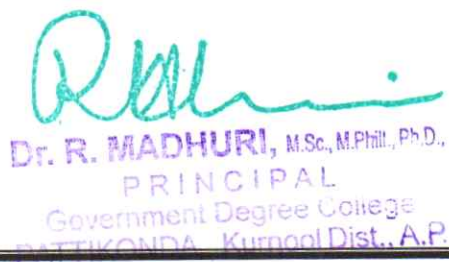 Dr. R. MADHURI, M.Sc., M.Phill., Ph.D.,
PRINCIPAL
Government Degree College
PATTIKONDA, Kurnool Dist., A.P.